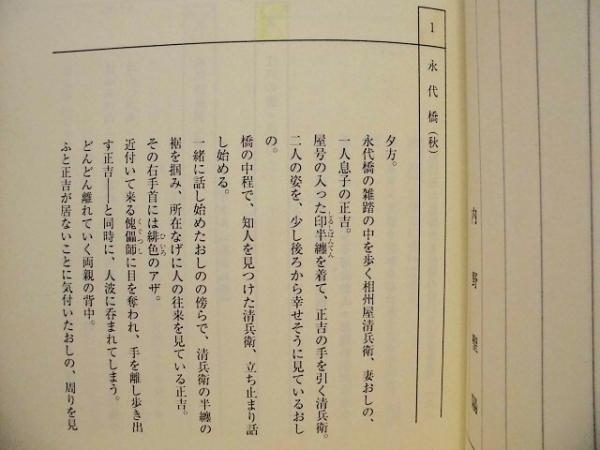 1 永代橋(秋)
夕方。
永代橋の雑踏の中を歩く相州屋清兵衛、妻おしの、
一人息子の正吉。
屋号の入った印半纏を着て、正吉の手を引く清兵衛。
二人の姿を、少し後ろから幸せそうに見ているおし
の。
橋の中程で、知人を見つけた清兵衛、立ち止まり話
し始める。
一緒に話し始めたおしのの傍らで、清兵衛の半纏の
裾を掴み、所在なげに人の往来を見ている正吉。
その右手首には緋色のアザ。
近付いて来る傀儡師に目を奪われ、手を離し歩き出
す正吉――と同時に、人波に呑まれてしまう。
どんどん離れていく両親の背中。
ふと正吉が居ないことに気付いたおしの、周りを見